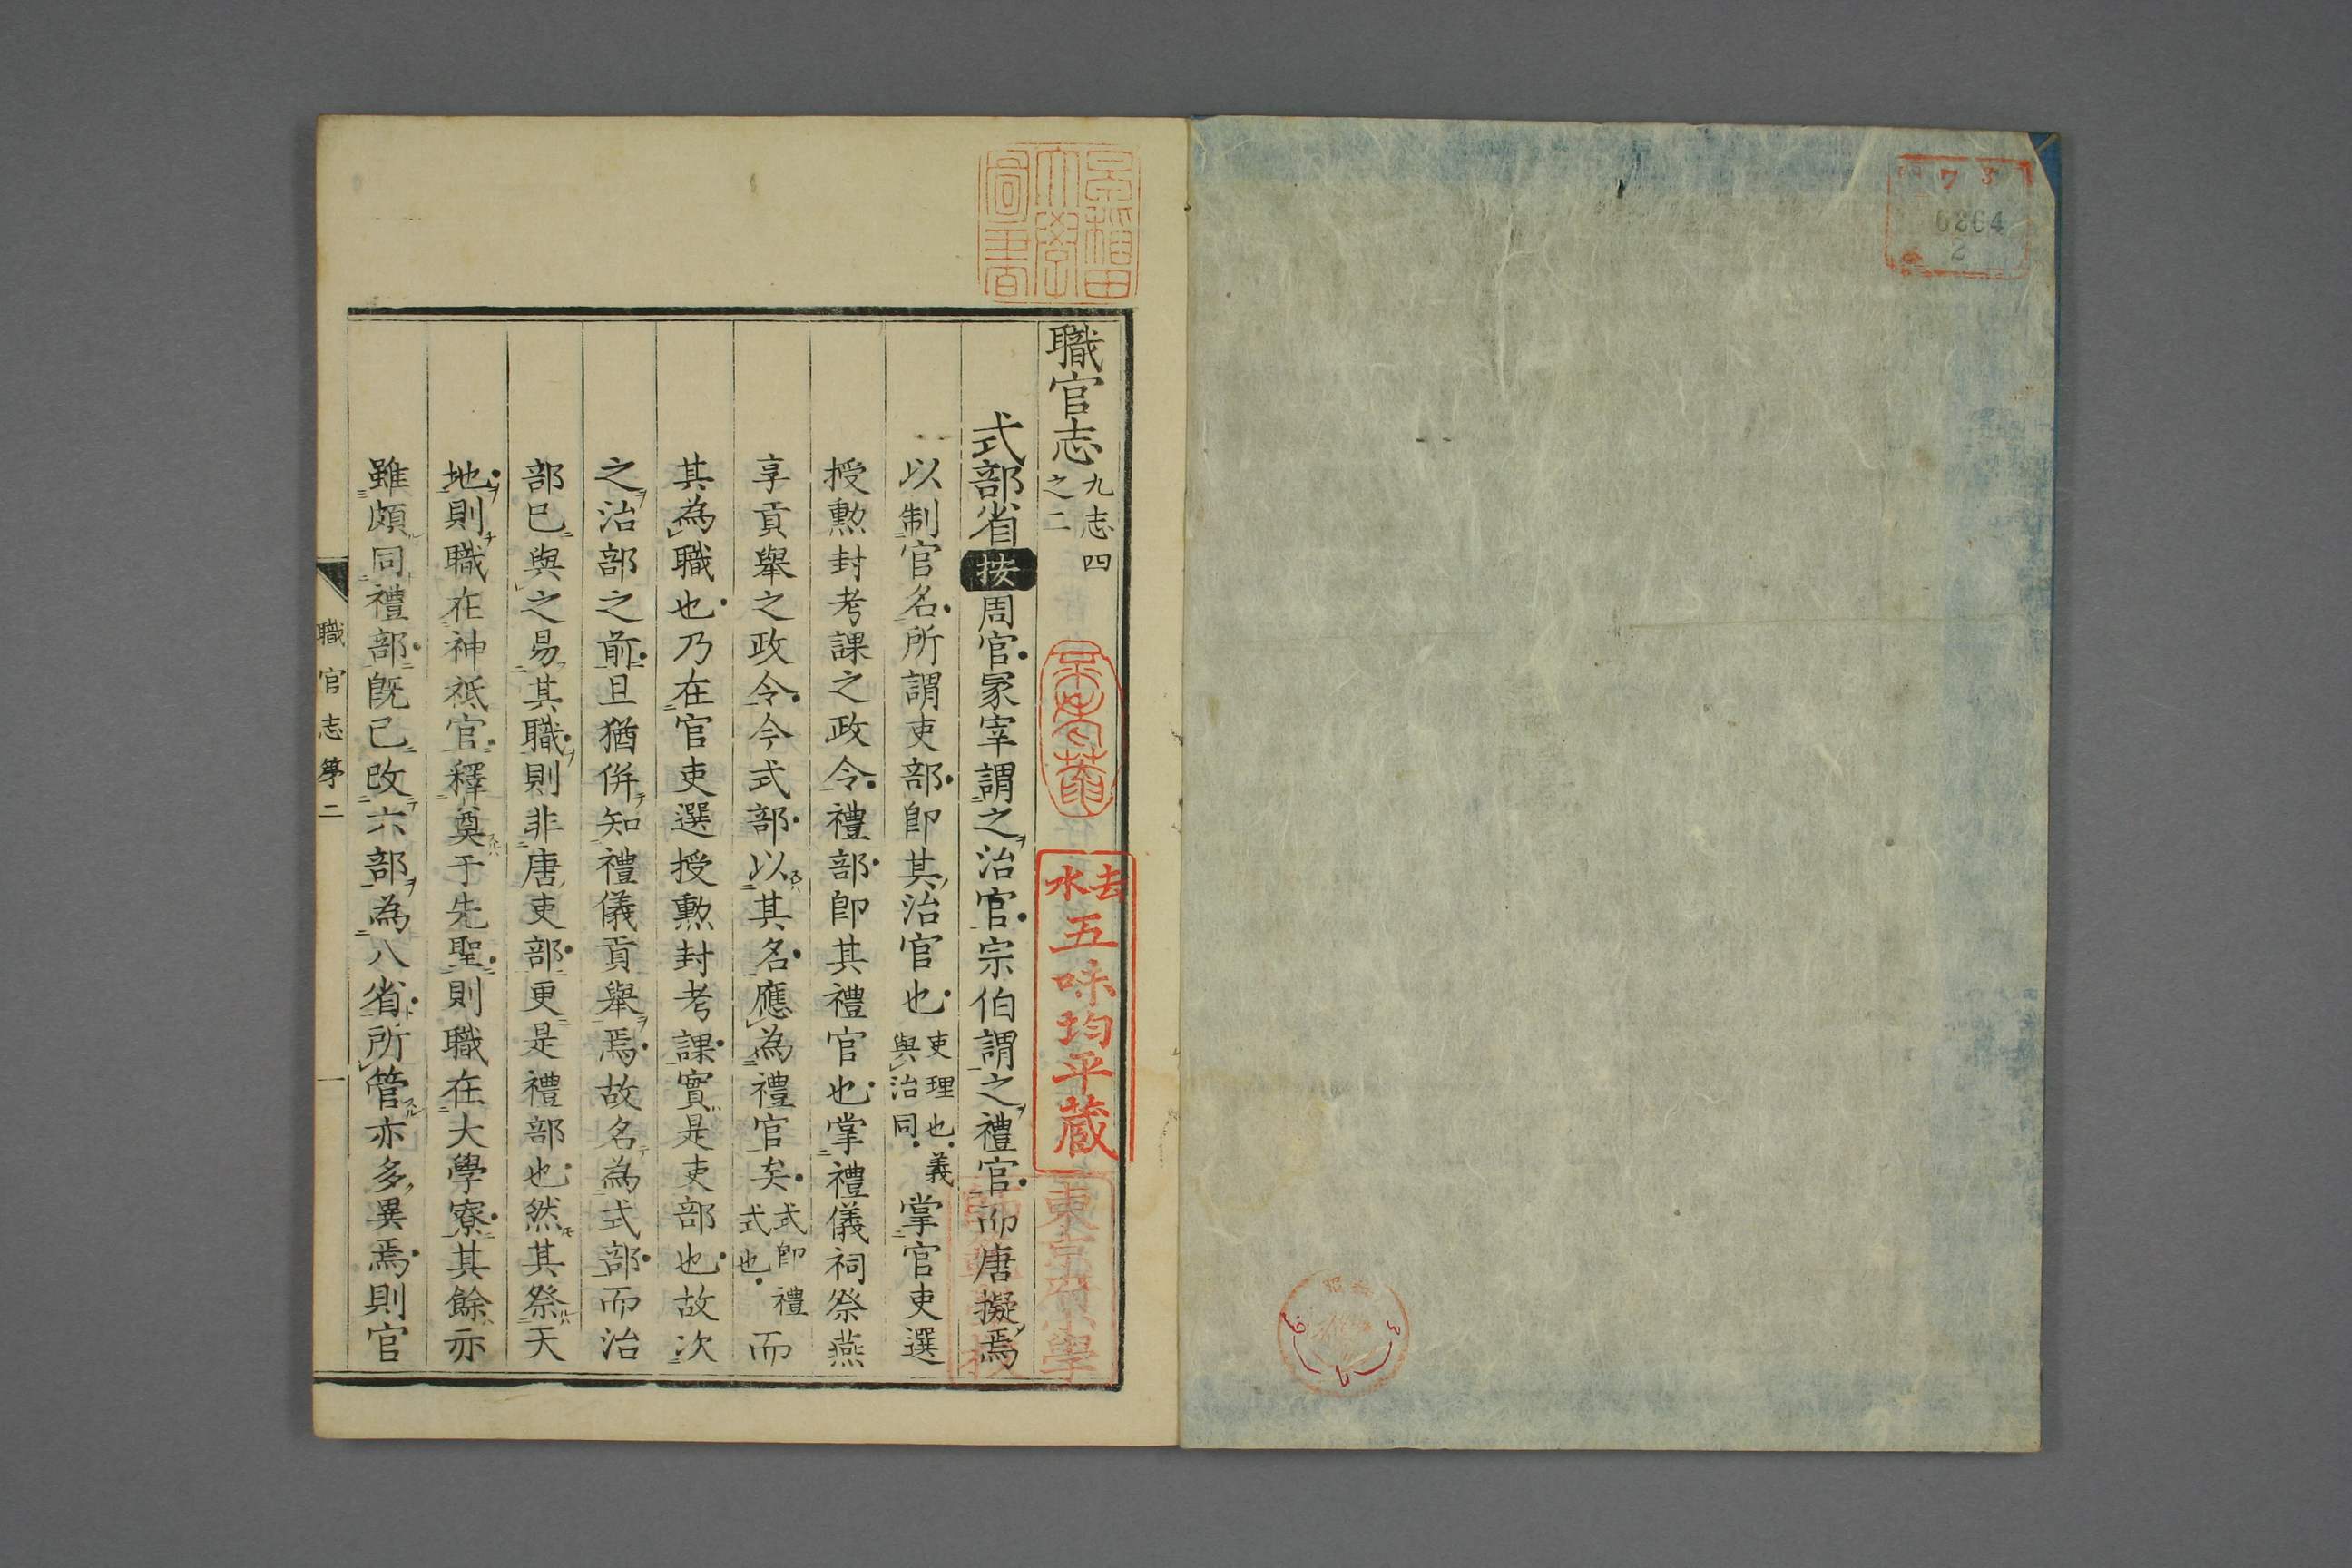 7 3
0264
2
早稲田
大學
圖書
職官志 九志四
之二
式部省 按 周官冢宰謂之治官宗伯謂之禮官而唐擬焉
以制官名所謂吏部卽其治官也 吏理也義
與治同 掌官吏選
授勲封考課之政令禮部卽其禮官也掌禮儀祠祭燕
享貢舉之政令今式部以其名應為禮官矣 式卽禮
式也 而
其為職也乃在官吏選授勲封考課實是吏部也故次
之治部之前且猶併知禮儀貢舉焉故名為式部而治
部巳與之易其職則非唐吏部更是禮部也然其祭天
地則職在神祇官釋奠于先聖則職在大學寮其餘亦
雖頗同禮部既已改六部為八省所管亦多異焉則官
職官志第二
一
去水
五味均平蔵
東京府小學
師範學校